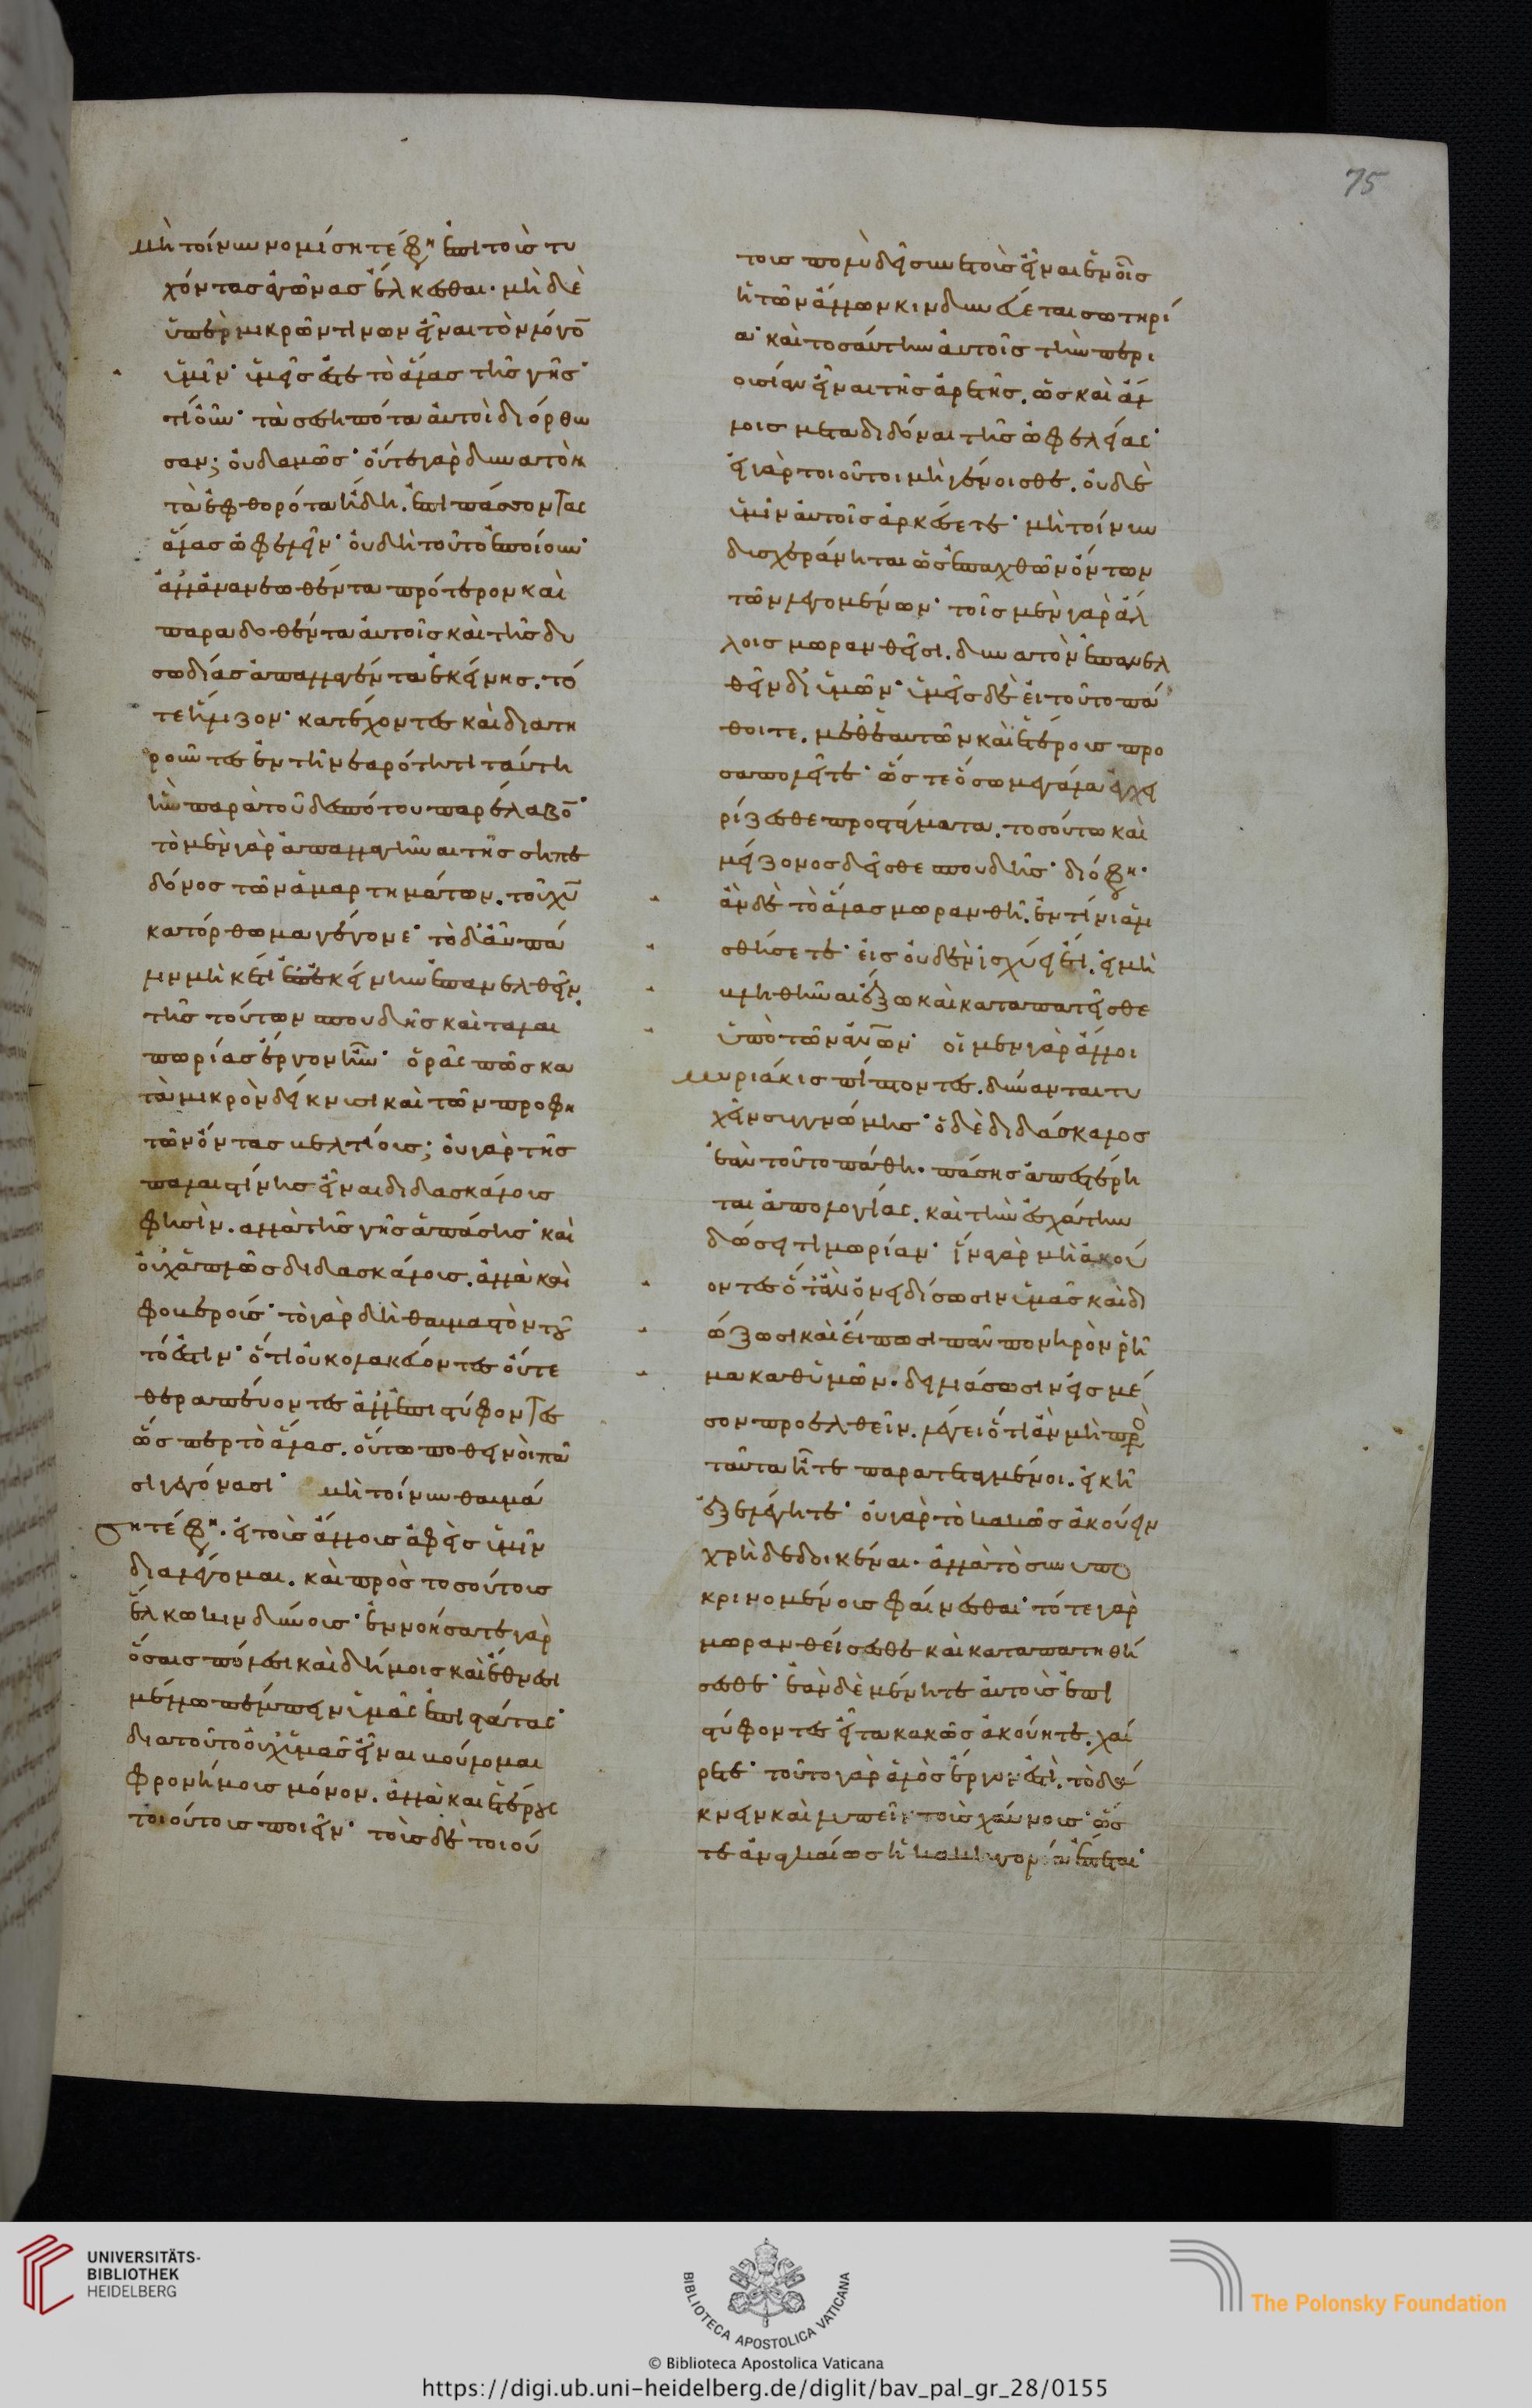 75
μὴ τοίνυν νομίσητέ φη ἐπὶ τοὺς τυ
χόντας ἀγῶνας ἕλκεσθαι· μὴ δὲ
ὑπὲρ μικρῶν τινων εἶναι τὸν λόγον
ὑμῖν· ὑμεῖς ἐστε τὸ ἅλας τῆς γῆς·
τί οὖν· τὰ σεσηπότα αὐτοὶ διόρθω
σαν; οὐδαμῶς· οὔτε γὰρ δυνατὸν
τὰ ἐφθορότα ἤδη. ἐπιπάσσοντας
ἅλας ὠφελεῖν· οὐ δὴ τοῦτο ἐποίουν·
ἀλλ' ἀνανεωθέντα πρότερον καὶ
παραδοθέντα αὐτοῖς καὶ τῆς δυ
σωδίας ἀπαλλαγέντα ἐκείνης. τό
τε ἥλιζον· κατέχοντες καὶ διατη
ροῦντες ἐν τῆ νεαρότητι ταύτη
ἣν παρὰ τοῦ δεσπότου παρέλαβον·
τὸ μὲν γὰρ ἀπαλλαγῆναι τῆς σηπε
δόνος τῶν ἁμαρτημάτων. τοῦ χυ
κατόρθωμα γέγονε· τὸ δ' αὖ πά
λιν μηκέτι ἐπ' ἐκείνην ἐπανελθεῖν.
τῆς τούτων σπουδῆς καὶ ταλαι
πωρίας ἔργον ἦν· ὁρᾶς πῶς κα
τὰ μικρὸν δείκνυσι καὶ τῶν προφη
τῶν ὄντας βελτίους; οὐ γὰρ τῆς
παλαιστίνης εἶναι διδασκάλους
φησὶν. ἀλλὰ τῆς γῆς ἁπάσης· καὶ
οὐχ ἁπλῶς διδασκάλους. ἀλλὰ καὶ
φοβερούς· τὸ γὰρ δὴ θαυμαστὸν του
τό ἐστιν· ὅτι οὐ κολακεύοντες οὔτε
θεραπεύοντες ἀλλ' ἐπιστύφοντες
ὥσπερ τὸ ἅλας. οὕτω ποθεινοὶ πᾶ
σι γεγόνασι· μὴ τοίνυν θαυμά
σητέ φη. εἰ τοὺς ἄλλους ἀφεὶς ὑμῖν
διαλέγομαι. καὶ πρὸς τοσούτους
ἕλκω κινδύνους· ἐννοήσατε γὰρ
ὅσαις πόλεσι καὶ δήμοις καὶ ἔθνεσι
μέλλω πέμπειν ὑμᾶς ἐπιστάτας·
διατοῦτο οὐχ ὑμᾶς εἶναι βούλομαι
φρονίμους μόνον. ἀλλὰ καὶ ἑτέρους
τοιούτους ποιεῖν· τοὺς δὲ τοιού
τους πολὺ δεῖ συνετοὺς εἶναι ἐν οἷς
ἡ τῶν ἄλλων κινδυνεύεται σωτηρί
α· καὶ τοσαύτην αὐτοῖς τὴν περι
ουσίαν εἶναι τῆς ἀρετῆς. ὡς καὶ ἄλ
λοις μεταδιδόναι τῆς ὠφελείας·
εἰ γὰρ τοιοῦτοι μὴ γένοισθε. οὐδὲ
ὑμῖν αὐτοῖς ἀρκέσετε· μὴ τοίνυν
δυσχεράνηται ὡς ἐπαχθῶν ὄντων
τῶν λεγομένων· τοῖς μὲν γὰρ ἄλ
λοις μωρανθεῖσι. δυνατὸν ἐπανελ
θεῖν δι' ὑμῶν· ὑμεῖς δὲ εἰ τοῦτο πά
θοιτε. μεθ' ἑαυτῶν καὶ ἑτέρους προ
σαπολεῖτε· ὥστε ὅσω μεγάλα ἐγχει
ρίζεσθε πράγματα. τοσούτω καὶ
μείζονος δεῖσθε σπουδῆς· διό φη·
ἂν δὲ τὸ ἅλας μωρανθῆ. ἐν τίνι ἁλι
σθήσετε· εἰς οὐδὲν ἰσχύει ἔτι. εἰ μὴ
βληθῆναι ἔξω καὶ καταπατεῖσθε
ὑπὸ τῶν ἀνων· οἱ μὲν γὰρ ἄλλοι
μυριάκις πίπτοντες. δύνανται τυ
χεῖν συγγνώμης· ὁ δὲ διδάσκαλος
ἐὰν τοῦτο πάθη. πάσης ἀπεστέρη
ται ἀπολογίας. καὶ τὴν ἐσχάτην
δώσει τιμωρίαν· ἵνα γὰρ μὴ ἀκού
οντες ὅτ' ἂν ὀνειδίσωσιν ὑμᾶς καὶ δι
ώξωσι καὶ εἴπωσι πᾶν πονηρὸν ῥῆ
μα καθ' ὑμῶν. δειλιάσωσιν εἰς μέ
σον προελθεῖν. λέγει ὅτι ἂν μὴ προ
ταῦτα ἦτε παρατεταγμένοι. εἰκῆ
ἐξελέγητε· οὐ γὰρ τὸ κακῶς ἀκούειν
χρὴ δεδοικέναι. ἀλλὰ τὸ συνυπο
κρινομένους φαίνεσθαι· τότε γὰρ
μωρανθείσεσθε καὶ καταπατηθή
σεσθε· ἐὰν δὲ μένητε αὐτοὺς ἐπι
στύφοντες εἶτα κακῶς ἀκούητε. χαί
ρετε· τοῦτο γὰρ ἁλὸς ἔργον ἐστὶ. τὸ δά
κνειν καὶ λυπεῖν τοὺς χαύνους· ὥσ
τε ἀναγκαίως ἡ κακηγορία ἕπεται·
UNIVERSITÄTS-
BIBLIOTHEK
HEIDELBERG
BIBLIOTECA APOSTOLICA VATICANA
The Polonsky Foundation
© Biblioteca Apostolica Vaticana
https://digi.ub.uni-heidelberg.de/diglit/bav_pal_gr_28/0155